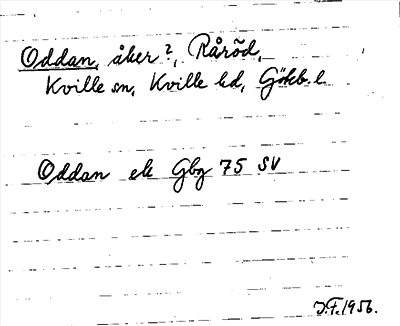 Oddan, åker?, Råröd,
Kville sn, Kville hd, Göhb. l.
Oddan ek Gbg 75 SV
J.F. 1956.